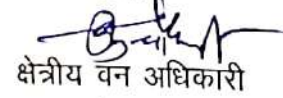 क्षेत्रीय वन अधिकारी